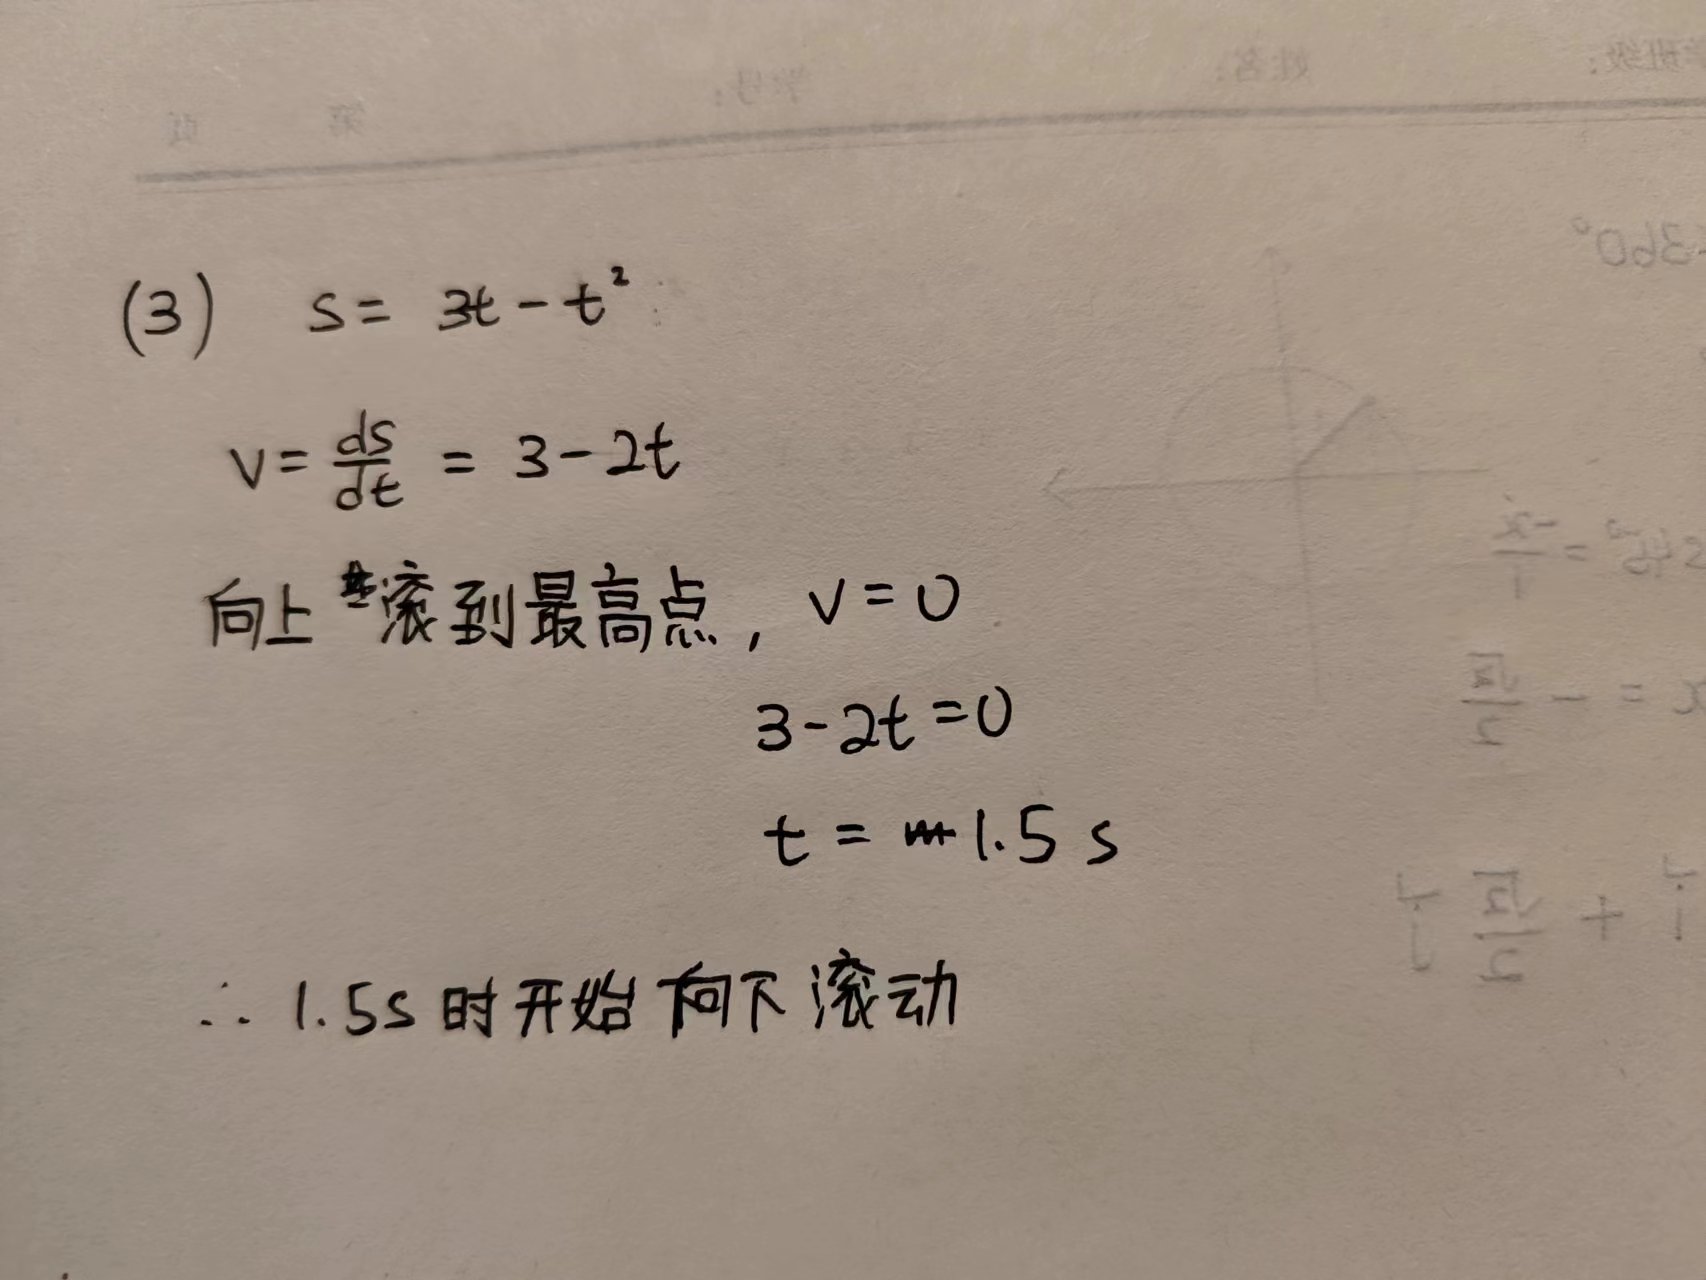 (3) s = 3t - t²
v = ds/dt = 3 - 2t
向上滚到最高点, v = 0
3 - 2t = 0
t = 1.5 s
∴ 1.5s 时开始向下滚动